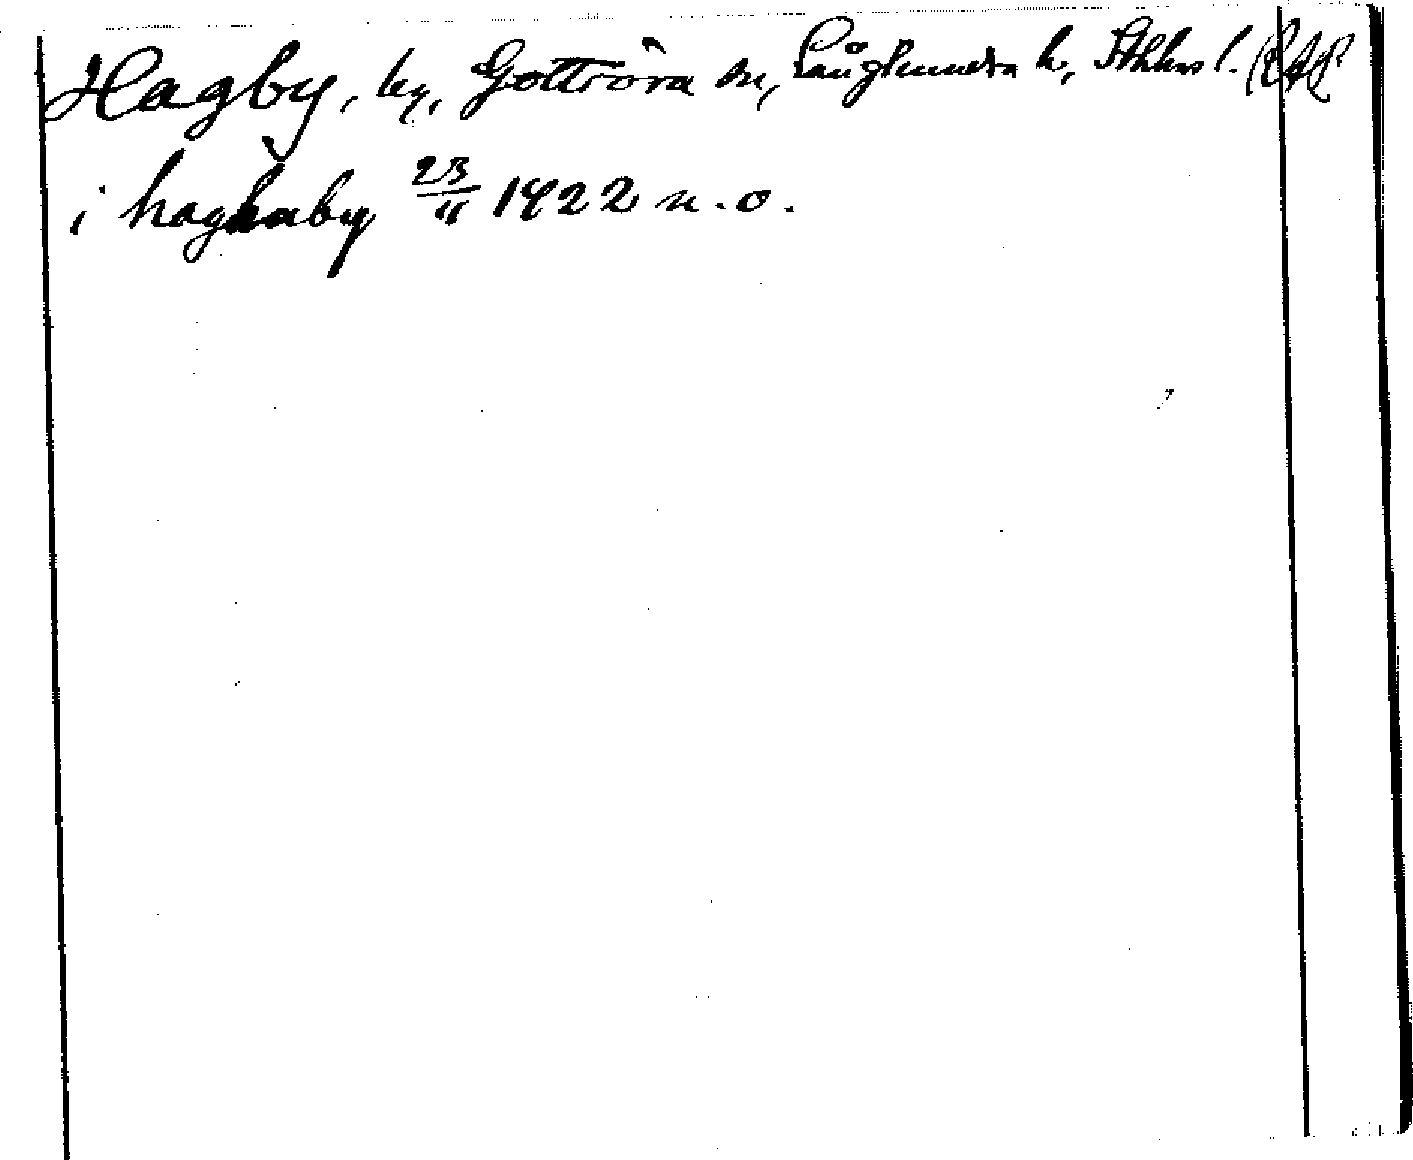 Hagby, by, Gottröra sn, Långhundra h, Sthlms l.
i haghaby 23/11 1422 n. o.